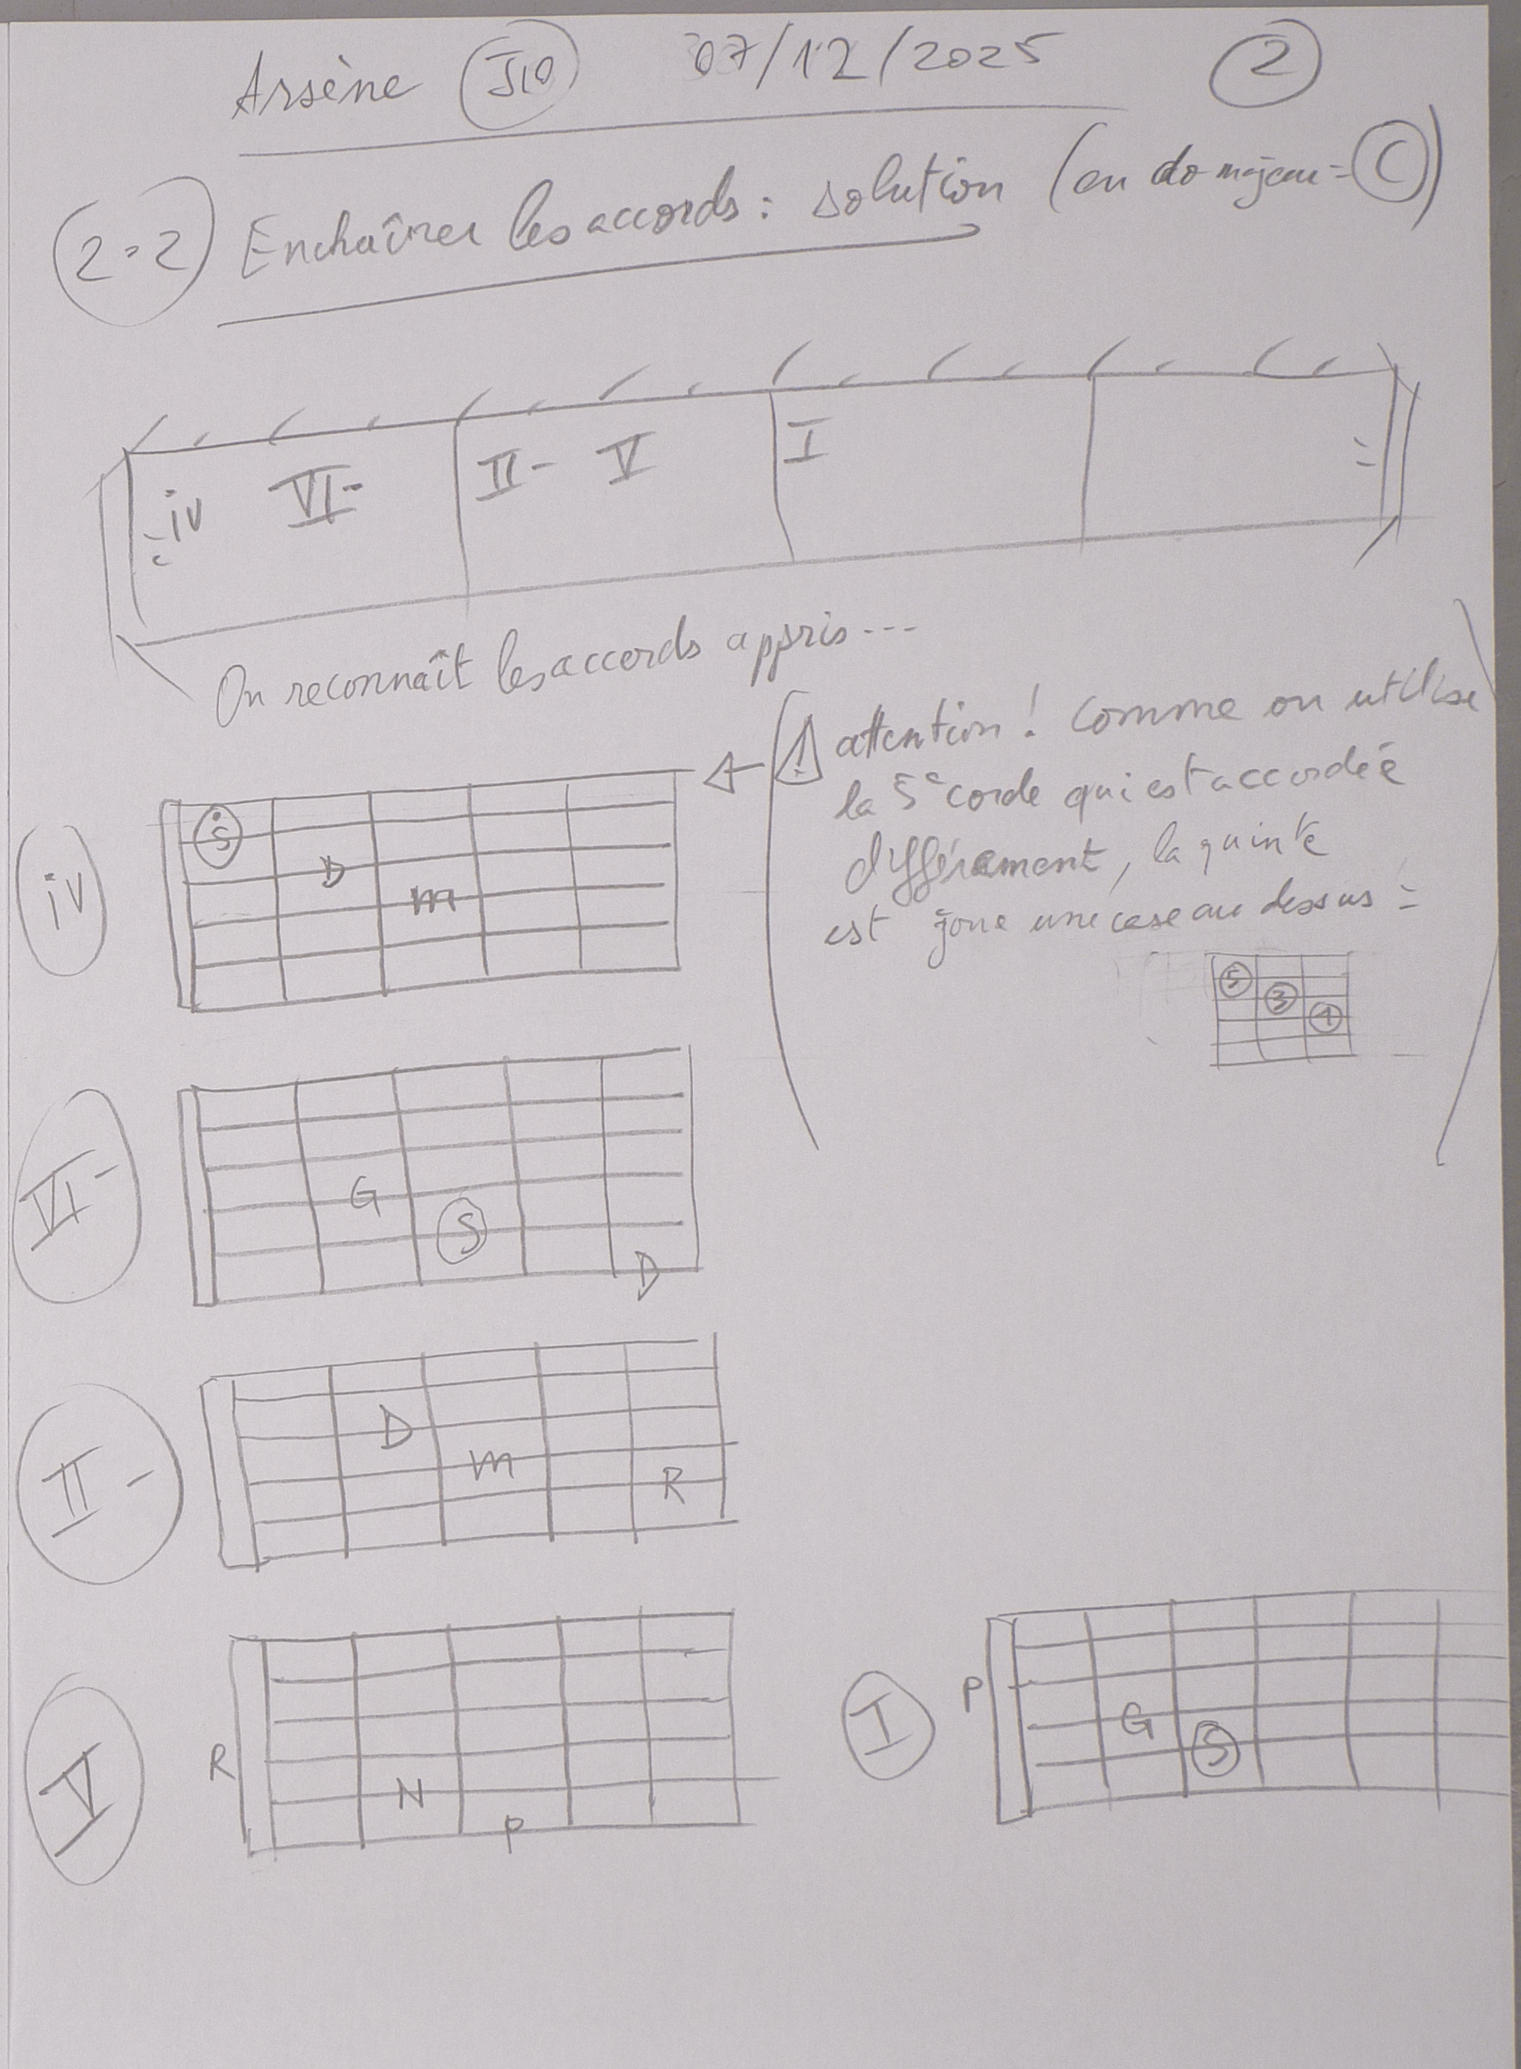 Arsène J10 07/12/2025 2
2.2 Enchaîner les accords : solution (en do majeur = C)
iv VI- II- V I
On reconnaît les accords appris...
! attention ! Comme on utilise
la 5e corde qui est accordée
différament, la quinte
est joue une case au dessus :
5
3
1
iv
S
D
m
VI-
G
S
D
II-
D
m
R
V
R
N
P
I
P
G
S